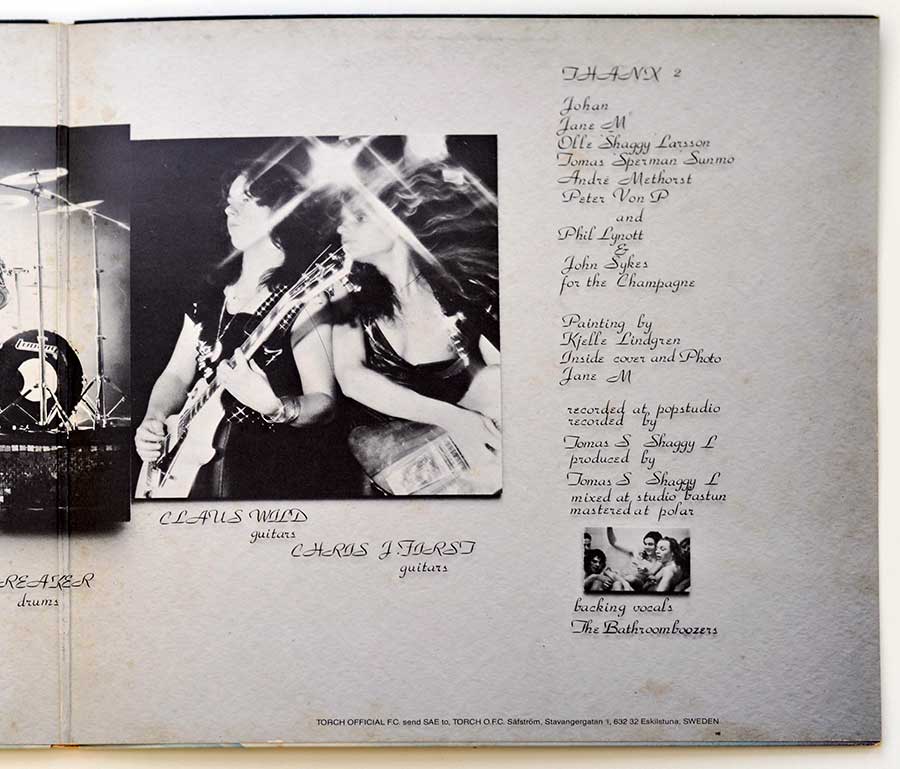 THANX 2
Johan
Jane M
Olle Shaggy Larsson
Tomas Sperman Sunmo
André Methorst
Peter Von P
and
Phil Lynott
&
John Sykes
for the Champagne
Painting by
Kjelle Lindgren
Inside cover and Photo
Jane M
recorded at popstudio
recorded by
Tomas S Shaggy L
produced by
Tomas S Shaggy L
mixed at studio bastun
mastered at polar
CLAUS WILD
guitars
CHRIS J. FIRST
guitars
REAKER
drums
backing vocals
The Bathroomboozers
TORCH OFFICIAL F.C. send SAE to, TORCH O.F.C. Säfström, Stavangergatan 1, 632 32 Eskilstuna, SWEDEN